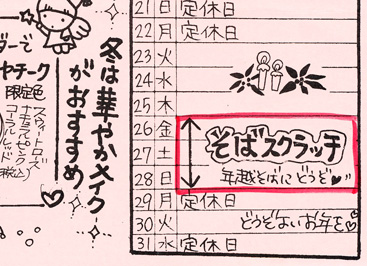 ダーで
ヤチーク
限定色
スウィートローズ
ナチュラルピンク
コーラルレッド
税込
冬は華やかメイク
がおすすめ
21日定休日
22月定休日
23火
24水
25木
26金
27土
28日
そばスクラッチ
年越そばにどうぞ
29月定休日
30火
どうぞよいお年を
31水定休日